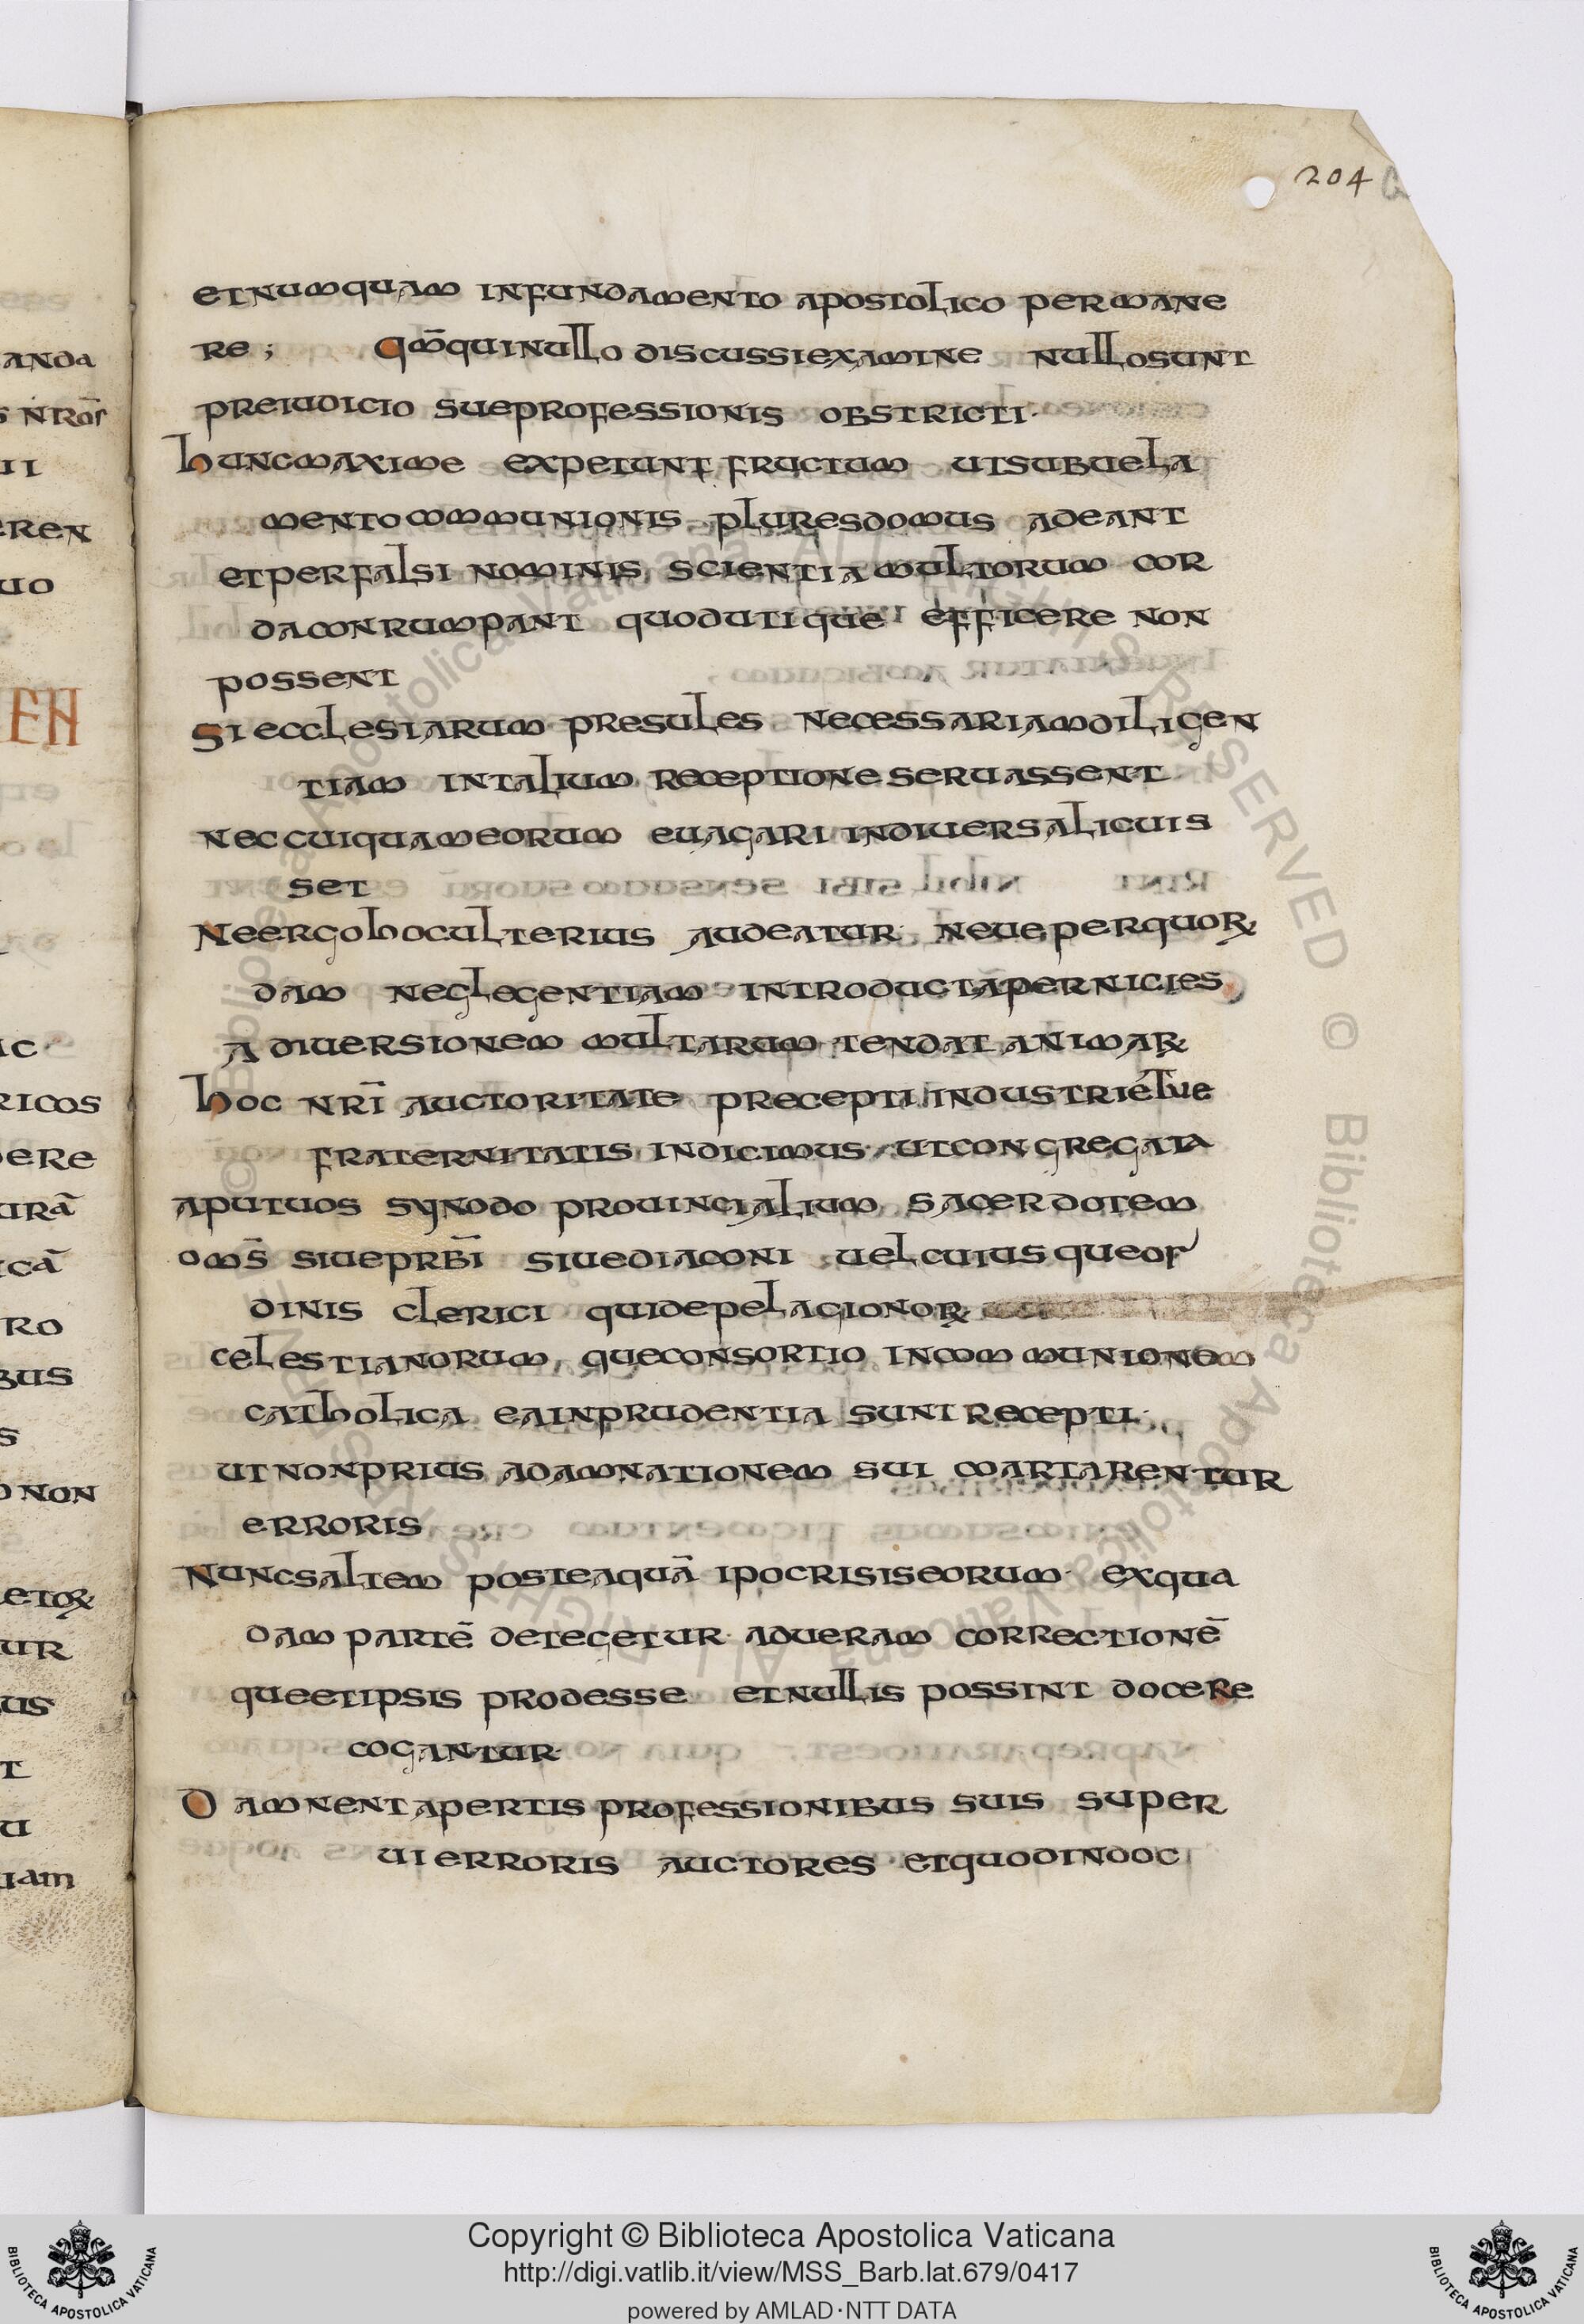 204
et numquam in fundamento apostolico permane
re; qm̄ qui nullo discussi examine nullo sunt
preiudicio sue professionis obstricti.
hunc maxime expetunt fructum ut sub uela
mento communionis plures domus adeant
et per falsi nominis scientia multorum cor
da conrumpant quod utique efficere non
possent
Si ecclesiarum presules necessariam diligen
tiam in talium receptione seruassent
nec cuiquam eorum euagari in diuersa licuis
set
Ne ergo hoc ulterius audeatur neue per quorꝝ
dam neglegentiam introductā pernicies
a diuersionem multarum tendat animarꝝ
hoc nr̄i auctoritate precepti industrie tue
fraternitatis indicimus. ut congregata
aput uos synodo prouincialium sacerdotem
oms̄ siue prb̄i siue diaconi uel cuiusque or
dinis clerici qui de pelagionorꝝ
celestianorum, que consortio in communionem
catholica ea inprudentia sunt recepti.
ut non prius ad amnationem sui coartarentur
erroris
Nunc saltem posteaquā ipocrisis eorum ex qua
dam partē detegetur. ad ueram correctionē
que et ipsis prodesse et nullis possint docere
cogantur.
Damnent apertis professionibus suis super
ui erroris auctores et quod in doc
anda
s nr̄or
ii
eren
uo
EN
ac
ricos
ere
urā
icā
ro
bus
s
o non
etorꝝ
ur
us
t
u
iam
© Biblioteca Apostolica Vaticana ALL RIGHTS RESERVED © Biblioteca Apostolica Vaticana ALL RIGHTS RESERVED
BIBLIOTECA APOSTOLICA VATICANA
Copyright © Biblioteca Apostolica Vaticana
http://digi.vatlib.it/view/MSS_Barb.lat.679/0417
powered by AMLAD·NTT DATA
BIBLIOTECA APOSTOLICA VATICANA